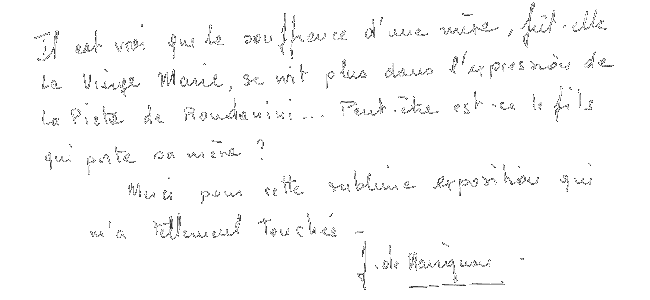 Il est vrai que la souffrance d'une mère, fût-elle
la Vierge Marie, se voit plus dans l'expression de
la Pietà de Rondanini... Peut-être est-ce le fils
qui porte sa mère ?
Merci pour cette sublime exposition qui
m'a tellement touchée -
J. de